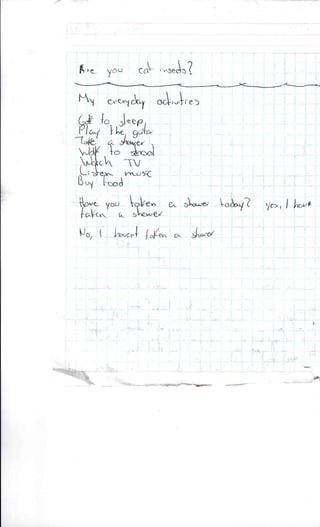 Are you eat insects?
My everyday activities
Get to sleep
Play the guitar
Take a shower
Walk to school
Watch TV
Listen music
Buy food
Have you taken a shower today? yes, I have
taken a shower
No, I havent taken a shower